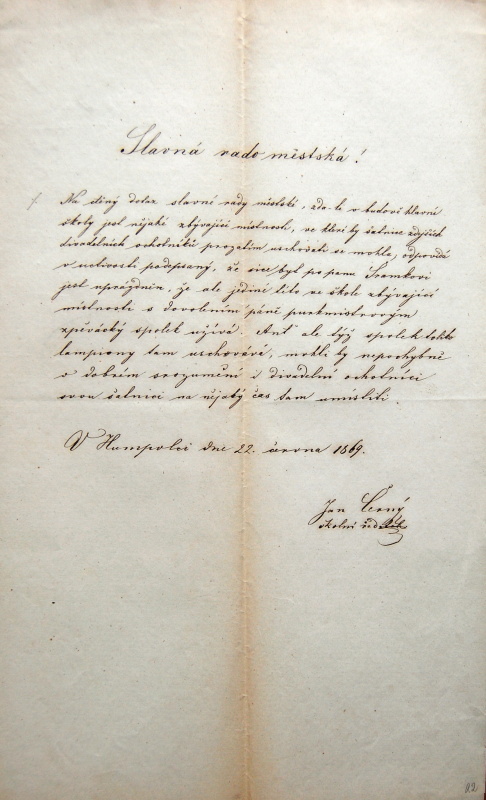 Slavná rado městská!
Na ctěný dotaz slavné rady městské, zda-li v budově hlavné
školy jest nějaké zbývající místnosti, ve které by šatnice zdejších
divadelních ochotníků prozatím uschovati se mohla, odpovídá
v uctivosti podepsaný, že sice byt po panu Sramkovi
jest uprázdněn, že ale jediné této ve škole zbývající
místnosti s dovolením páně purkmistrovým
zpěvácký spolek užívá. Anť ale týž spolek toliko
lampiony tam uschovává, mohli by nepochybně
v dobrém srozumění i divadelní ochotníci
svou šatnici na nějaký čas tam umístiti.
V Humpolci dne 22. června 1869.
Jan Černý
školní řiditel
92